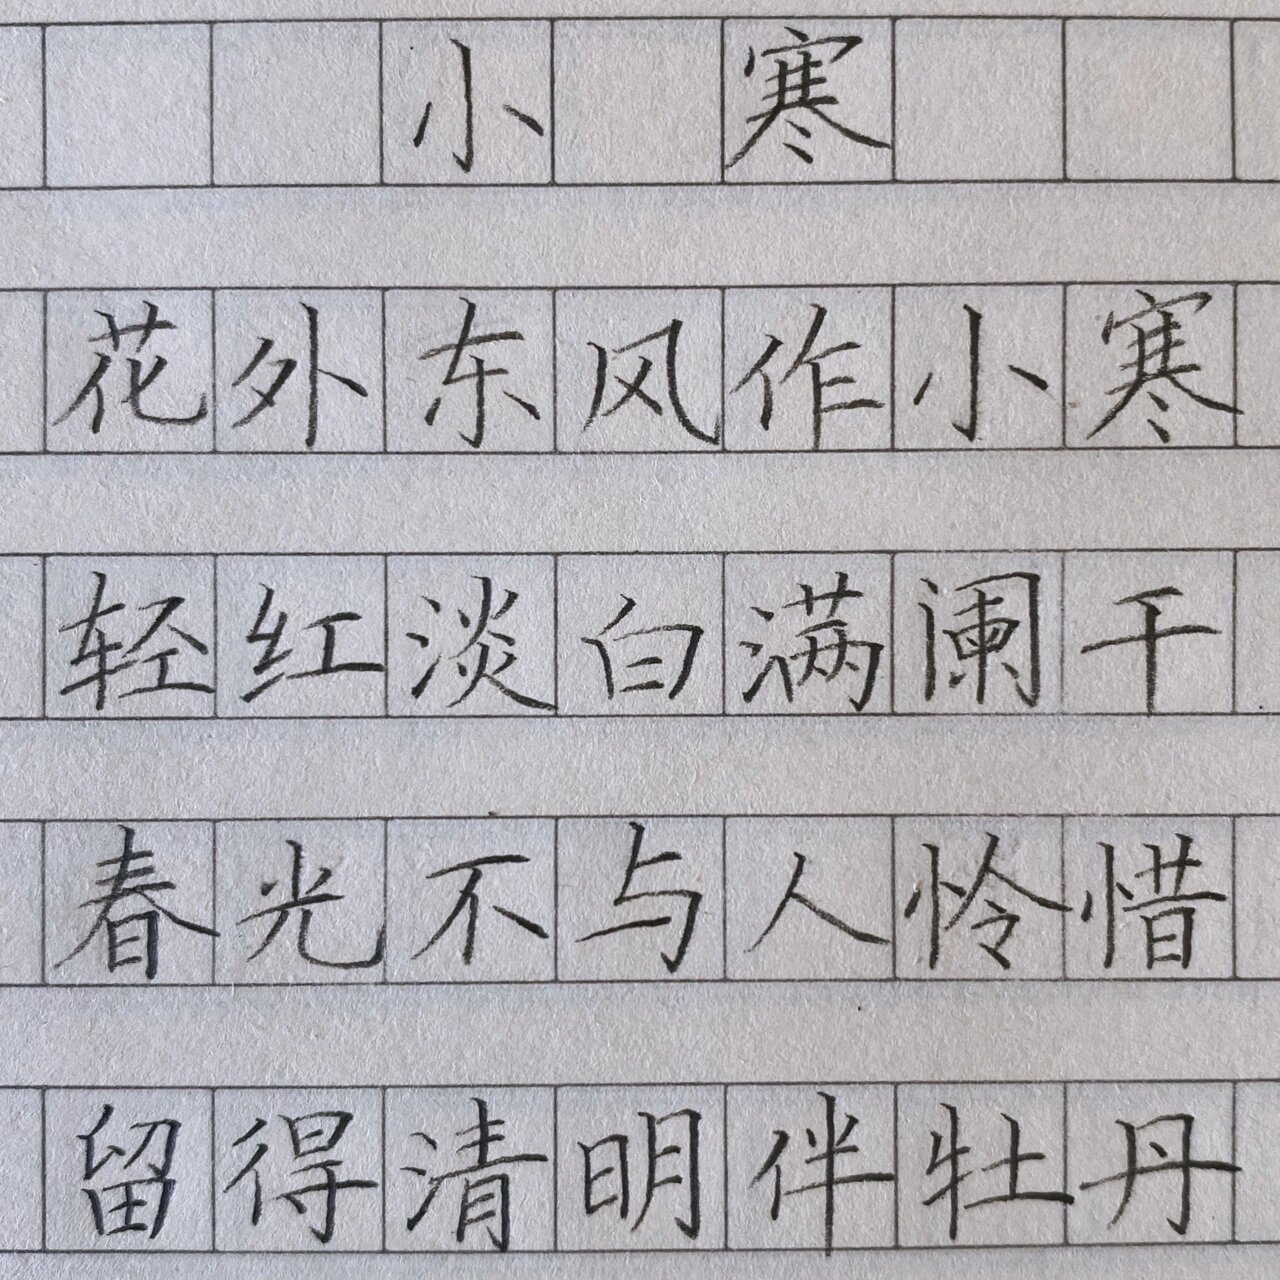 小寒
花外东风作小寒
轻红淡白满阑干
春光不与人怜惜
留得清明伴牡丹